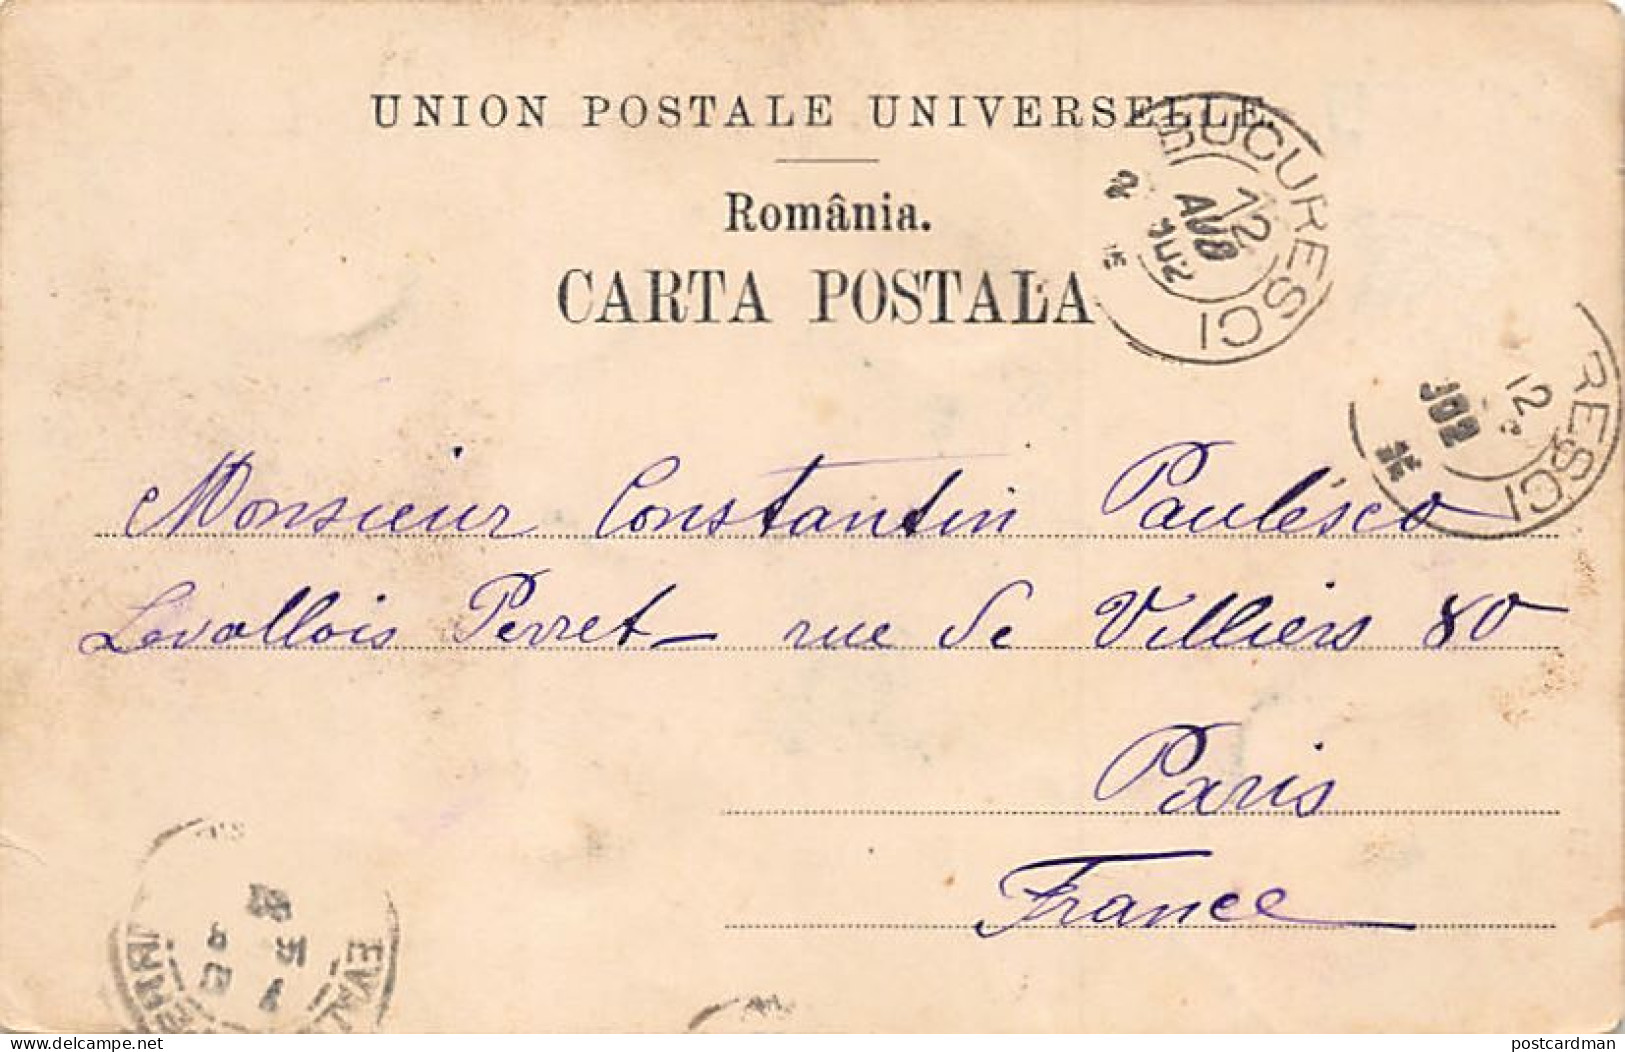 UNION POSTALE UNIVERSELLE
România.
CARTA POSTALA
BUCURESCI
12
AUG
902
RESCI
12
902
Monsieur Constantin Paulésco
Levallois Perret – rue de Villiers 80
Paris
France
www.delcampe.net
postcardman